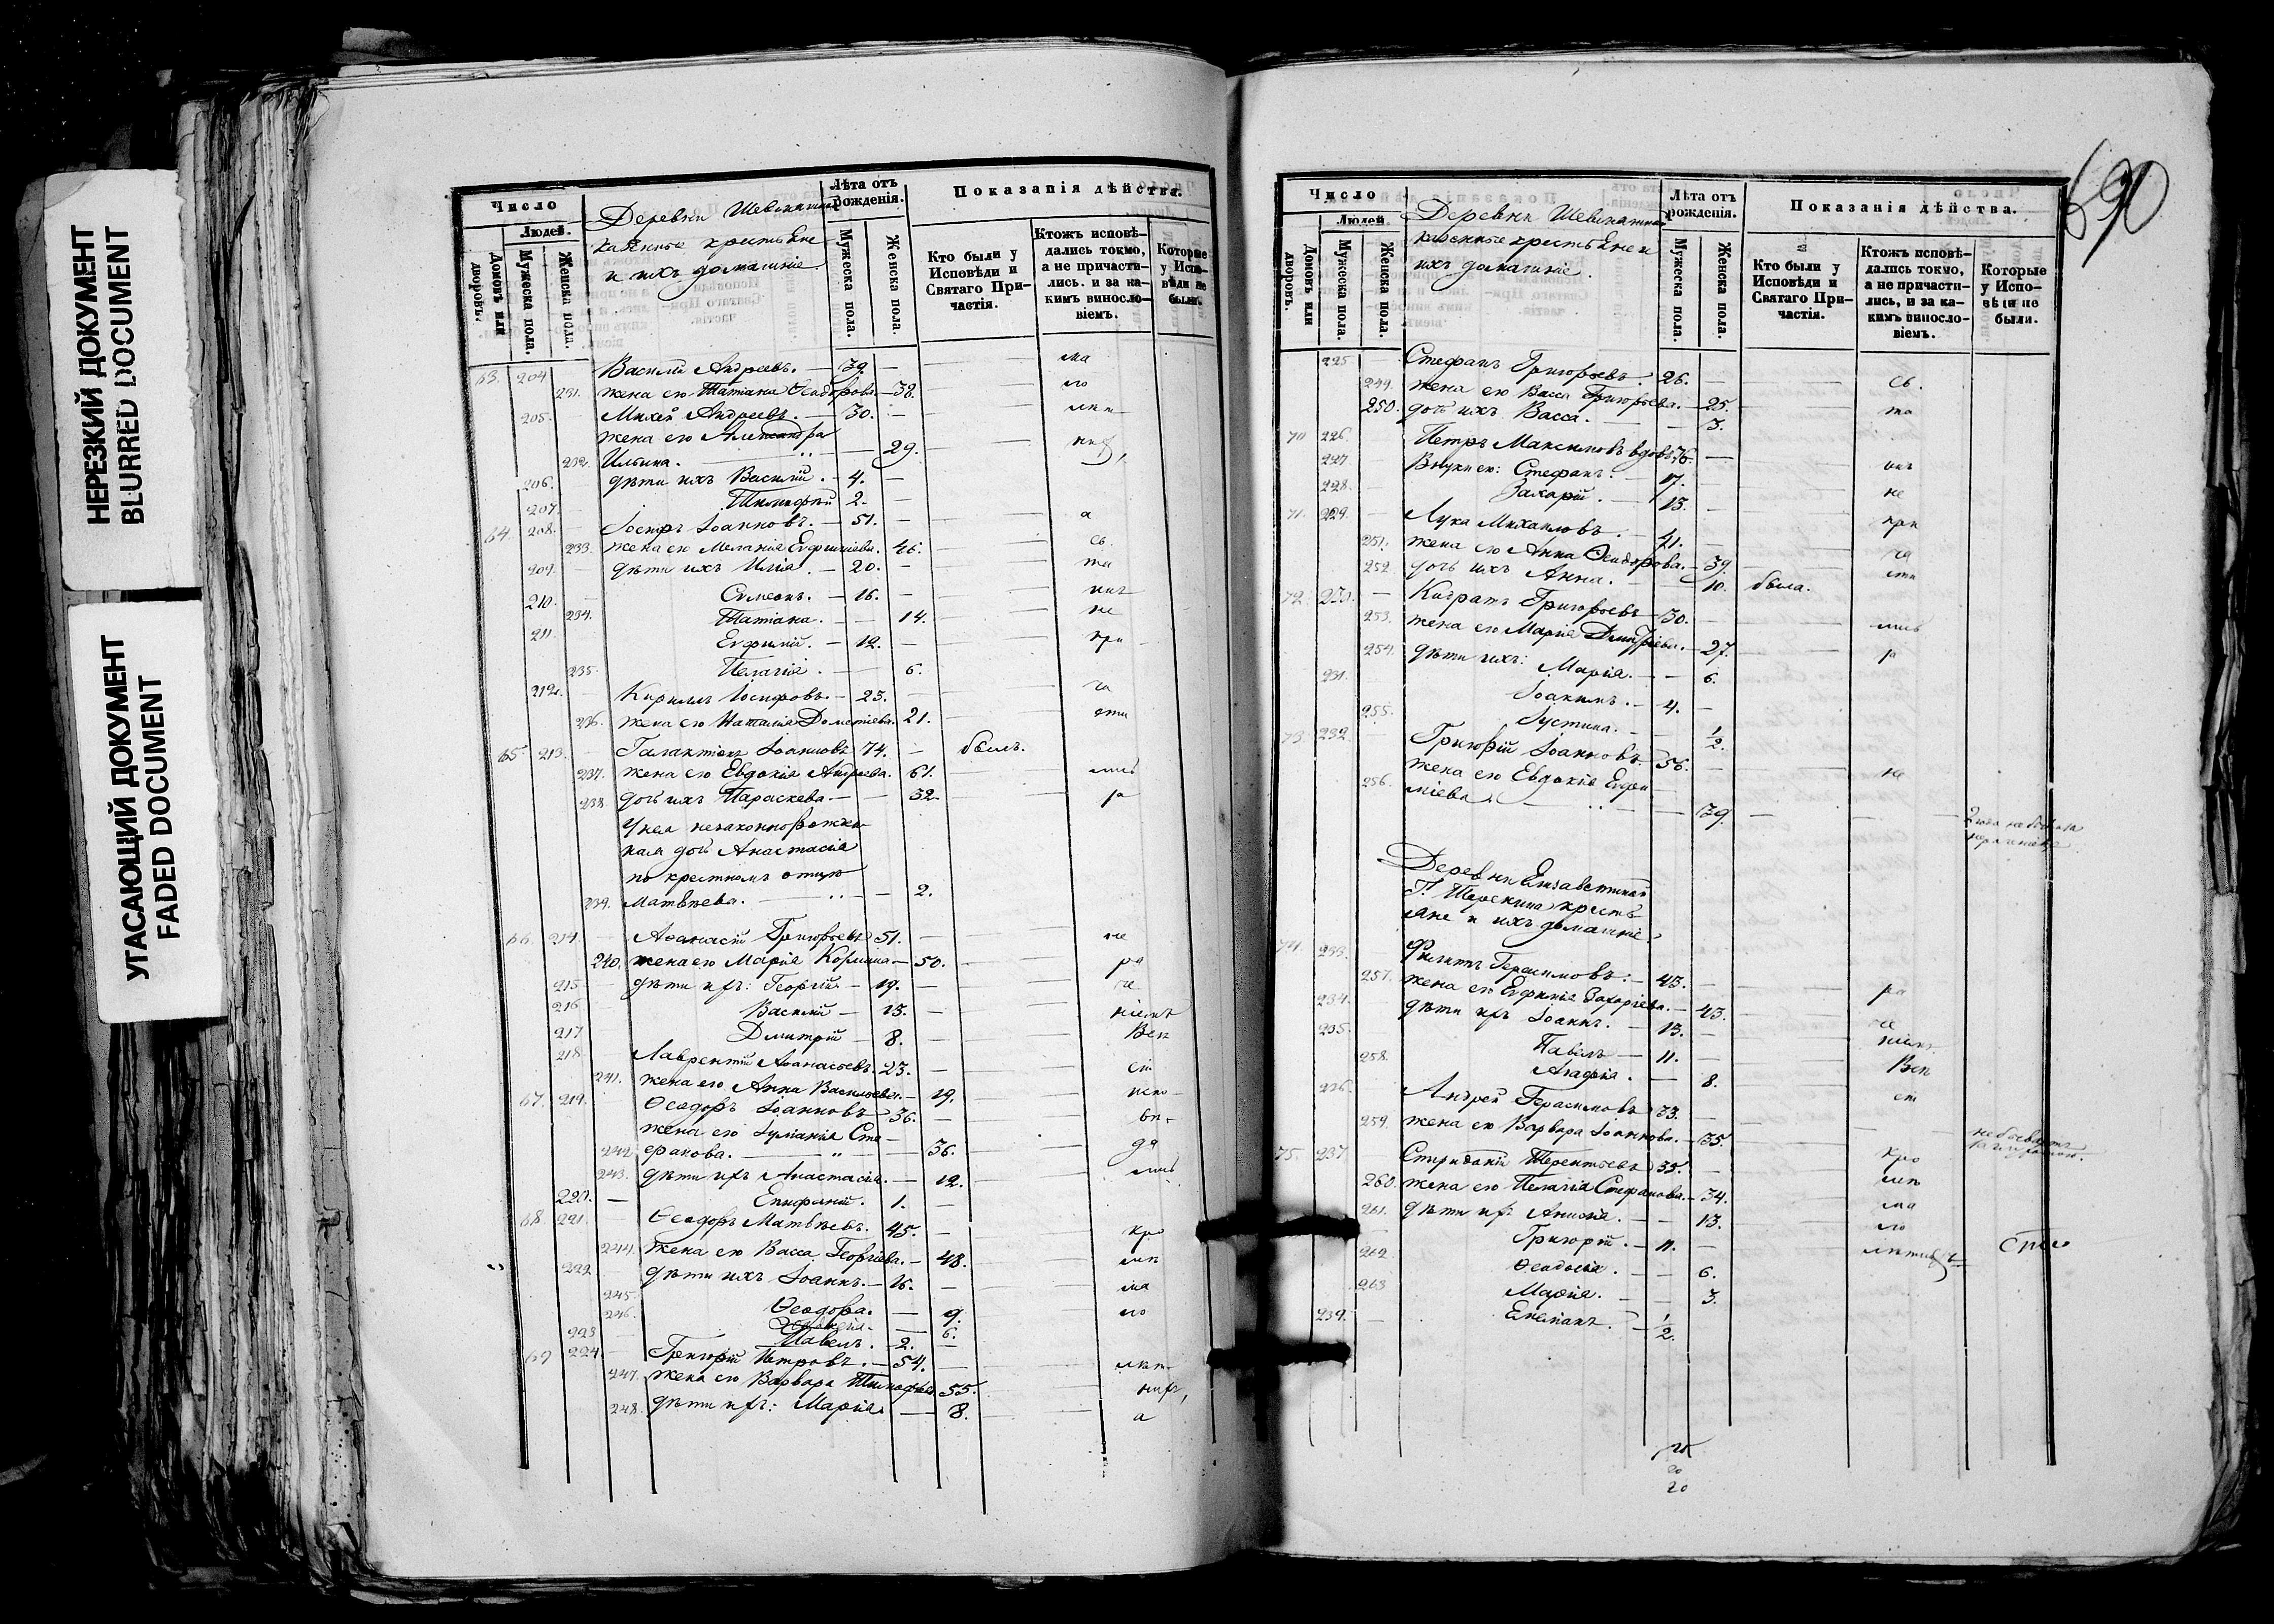 НЕРЕЗКИЙ ДОКУМЕНТ
BLURRED DOCUMENT
УГАСАЮЩИЙ ДОКУМЕНТ
FADED DOCUMENT
Число
Людей.
Домовъ или дворовъ.
Мужеска пола.
Женска пола.
Деревни
казенные крестьяне
и ихъ домашніе.
Лѣта отъ рожденія.
Мужеска пола.
Женска пола.
Показанія дѣйства.
Кто были у Исповѣди и Святаго Причастія.
Ктожъ исповѣдались токмо, а не причастились. и за какимъ винословіемъ.
Которые у Исповѣди не были.
63. 204 Василій Андреевъ. — 39. — ма
231. жена его Татіана Ѳеодорова — 38. ло
205. Михей Андреевъ. — 30. — лѣт
жена его Александра
232. Ильина. — 29.
206. дѣти ихъ Василій. — 4. —
207. Тимофей 2. —
64 208. Іосифъ Іоанновъ. — 51. — а
233. жена его Меланія Евфиміева. 46. съ.
209. дѣти ихъ Илія. — 20. — та
210. Симеонъ. — 16. —
234. Татіана. — 14. не
211. Евфимій. — 12. — при
235. Пелагія. — 6.
212. Кириллъ Іосифовъ. — 23. — ча
236. жена его Наталія 21. сти
65 213. Галактіонъ Іоанновъ 74. — былъ.
237. жена его Евдокія Андреева. 61. лись
238. дочь ихъ Параскева. — 32. р
У нея незаконнорожден
ная дочь Анастасія
по крестномъ отцѣ
239. Матвѣева. — 2.
66. 214. Аѳанасій Григорьевъ 51. —
240. жена его Марія — 50. ра
215 дѣти ихъ: Георгій — 19. — че
216 Василій — 13. — ніемъ
217 Дмитрій — 8. — Вел
218. Лаврентій Аѳанасьевъ. 23. —
241. жена его Анна Васильева. — 19. испо
67. 219. Ѳеодоръ Іоанновъ — 36. — вѣ
жена его Іуліанія Сте
242. фанова. — 36. да
243. дѣти ихъ Анастасія. — 12. лись
220. — Епифаній. 1. —
68. 221. Ѳеодоръ Матвѣевъ. 45. — кро
244. жена его Васса Георгіева. — 48. мѣ
222. дѣти ихъ Іоаннъ. — 16. — ма
245. Ѳеодора. — 9. ло
246. — 6.
223 Павелъ. 2. —
69 224. Григорій Петровъ. — 54. — лѣт
247. жена его Варвара 55. нихъ,
248. дѣти ихъ: Марія — 8. а
690
Число
Людей.
Домовъ или дворовъ.
Мужеска пола.
Женска пола.
Деревни
казенные крестьяне и
ихъ домашніе.
Лѣта отъ рожденія.
Мужеска пола.
Женска пола.
Показанія дѣйства.
Кто были у Исповѣди и Святаго Причастія.
Ктожъ исповѣдались токмо, а не причастились, и за какимъ винословіемъ.
Которые у Исповѣди не были.
225 Стефанъ Григорьевъ. 26. — съ.
249. жена его Васса Григорьева. — 25. та
250. дочь ихъ Васса. — 3.
70 226. Петръ Максимовъ вдовъ 76. —
227. Внуки его: Стефанъ. — 17. —
228. Захарій. — 13. — не
71. 229. Лука Михаиловъ. 41. — при
251. жена его Анна Ѳеодорова. — 39. ча
252. дочь ихъ Анна. — 10. была. сти
72. 230. Григорьевъ — 30. —
253. жена его Марія Дмитріева. — 27. лись
254. дѣти ихъ: Марія. — 6. р
231. Іоакимъ. — 4. —
255. Іустина. — 1/2.
73 232. Григорій Іоанновъ. 56. — не
жена его Евдокія Евфи
256. міева. — 39. —
Деревни Елизаветиной
Г. крестья
яне и ихъ домашніе.
74. 233. Герасимовъ: — 45. —
257. жена его Евфимія Захаріева. — 43. ра
234. дѣти ихъ Іоаннъ. — 13. че
235. Павелъ — 11. — ніемъ
258. Агафія. — 8. Вел
236. Андрей Герасимовъ 33. —
259. жена его Варвара Іоаннова. — 35.
75. 237 Спиридонъ Терентьевъ 35. — кро
260. жена его Пелагія Стефанова. — 34. мѣ
261. дѣти ихъ — 13. ма
Григорій. — 11. — ло
262 Ѳеодосія. — 6.
263 Марія. — 3.
239. — 1/2.